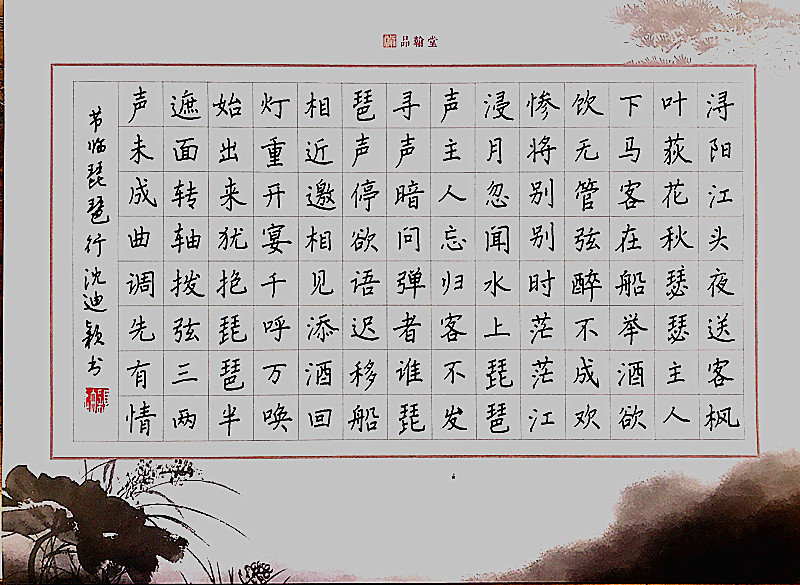 品翰堂
浔阳江头夜送客枫
叶荻花秋瑟瑟主人
下马客在船举酒欲
饮无管弦醉不成欢
惨将别别时茫茫江
浸月忽闻水上琵琶
声主人忘归客不发
寻声暗问弹者谁琵
琶声停欲语迟移船
相近邀相见添酒回
灯重开宴千呼万唤
始出来犹抱琵琶半
遮面转轴拨弦三两
声未成曲调先有情
节临琵琶行沈迪颖书